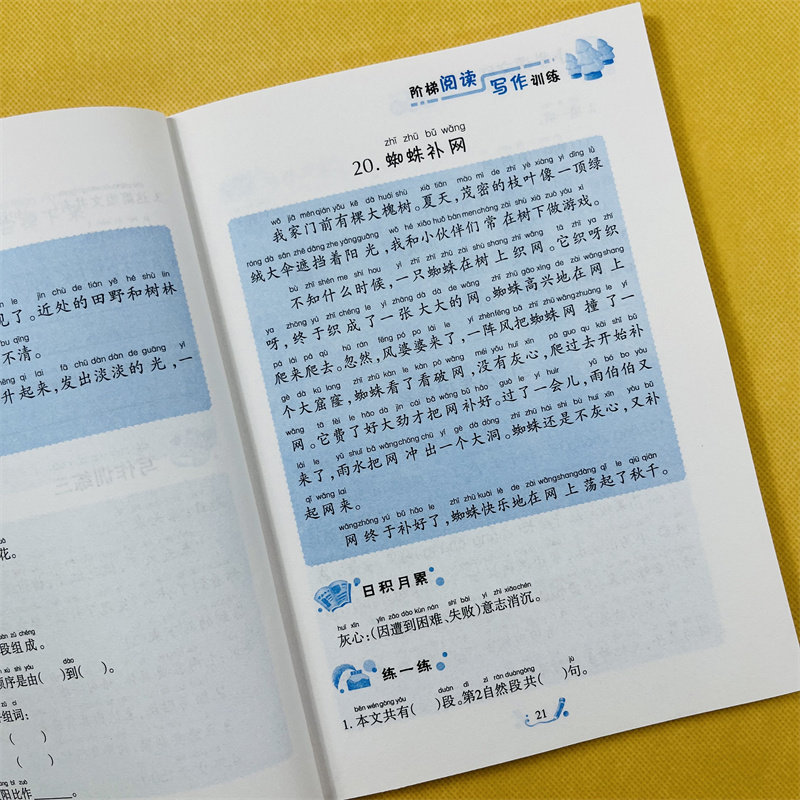 jìn chù de tián yě hé shù lín
见了。近处的田野和树林
bu qīng
不清。
shēng qǐ lai fā chū dàn dàn de guāng yī
升起来,发出淡淡的光,一
花。
段组成。
xù shì yóu dào
顺序是由( )到( )。
组词:
( )
( )
阳比作______。
阶梯阅读 写作训练
zhī zhū bǔ wǎng
20. 蜘蛛补网
wǒ jiā mén qián yǒu kē dà huái shù xià tiān mào mì de zhī yè xiàng yì dǐng lǜ
我家门前有棵大槐树。夏天,茂密的枝叶像一顶绿
róng dà sǎn zhē dǎng zhe yáng guāng wǒ hé xiǎo huǒ bàn men cháng zài shù xià zuò yóu xì
绒大伞遮挡着阳光,我和小伙伴们常在树下做游戏。
bù zhī shén me shí hou yì zhī zhī zhū zài shù shang zhī wǎng tā zhī ya zhī
不知什么时候,一只蜘蛛在树上织网。它织呀织
ya zhōng yú zhī chéng le yì zhāng dà dà de wǎng zhī zhū gāo xìng de zài wǎng shang
呀,终于织成了一张大大的网。蜘蛛高兴地在网上
pá lái pá qù hū rán fēng pó po lái le yí zhèn fēng bǎ zhī zhū wǎng zhuàng le yí
爬来爬去。忽然,风婆婆来了,一阵风把蜘蛛网撞了一
gè dà kū long zhī zhū kàn le kàn pò wǎng méi yǒu huī xīn pá guo qu kāi shǐ bǔ
个大窟窿,蜘蛛看了看破网,没有灰心,爬过去开始补
wǎng tā fèi le hǎo dà jìn cái bǎ wǎng bǔ hǎo guò le yí huìr yǔ bó bo yòu
网。它费了好大劲才把网补好。过了一会儿,雨伯伯又
lái le yǔ shuǐ bǎ wǎng chōng chū yí gè dà dòng zhī zhū hái shi bù huī xīn yòu bǔ
来了,雨水把网冲出一个大洞。蜘蛛还是不灰心,又补
qǐ wǎng lai
起网来。
wǎng zhōng yú bǔ hǎo le zhī zhū kuài lè de zài wǎng shang dàng qǐ le qiū qiān
网终于补好了,蜘蛛快乐地在网上荡起了秋千。
日积月累
huī xīn yīn zāo dào kùn nan shī bài yì zhì xiāo chén
灰心:(因遭到困难、失败)意志消沉。
练一练
běn wén gòng yǒu duàn dì zì rán duàn gòng jù
1. 本文共有( )段。第2自然段共( )句。
21